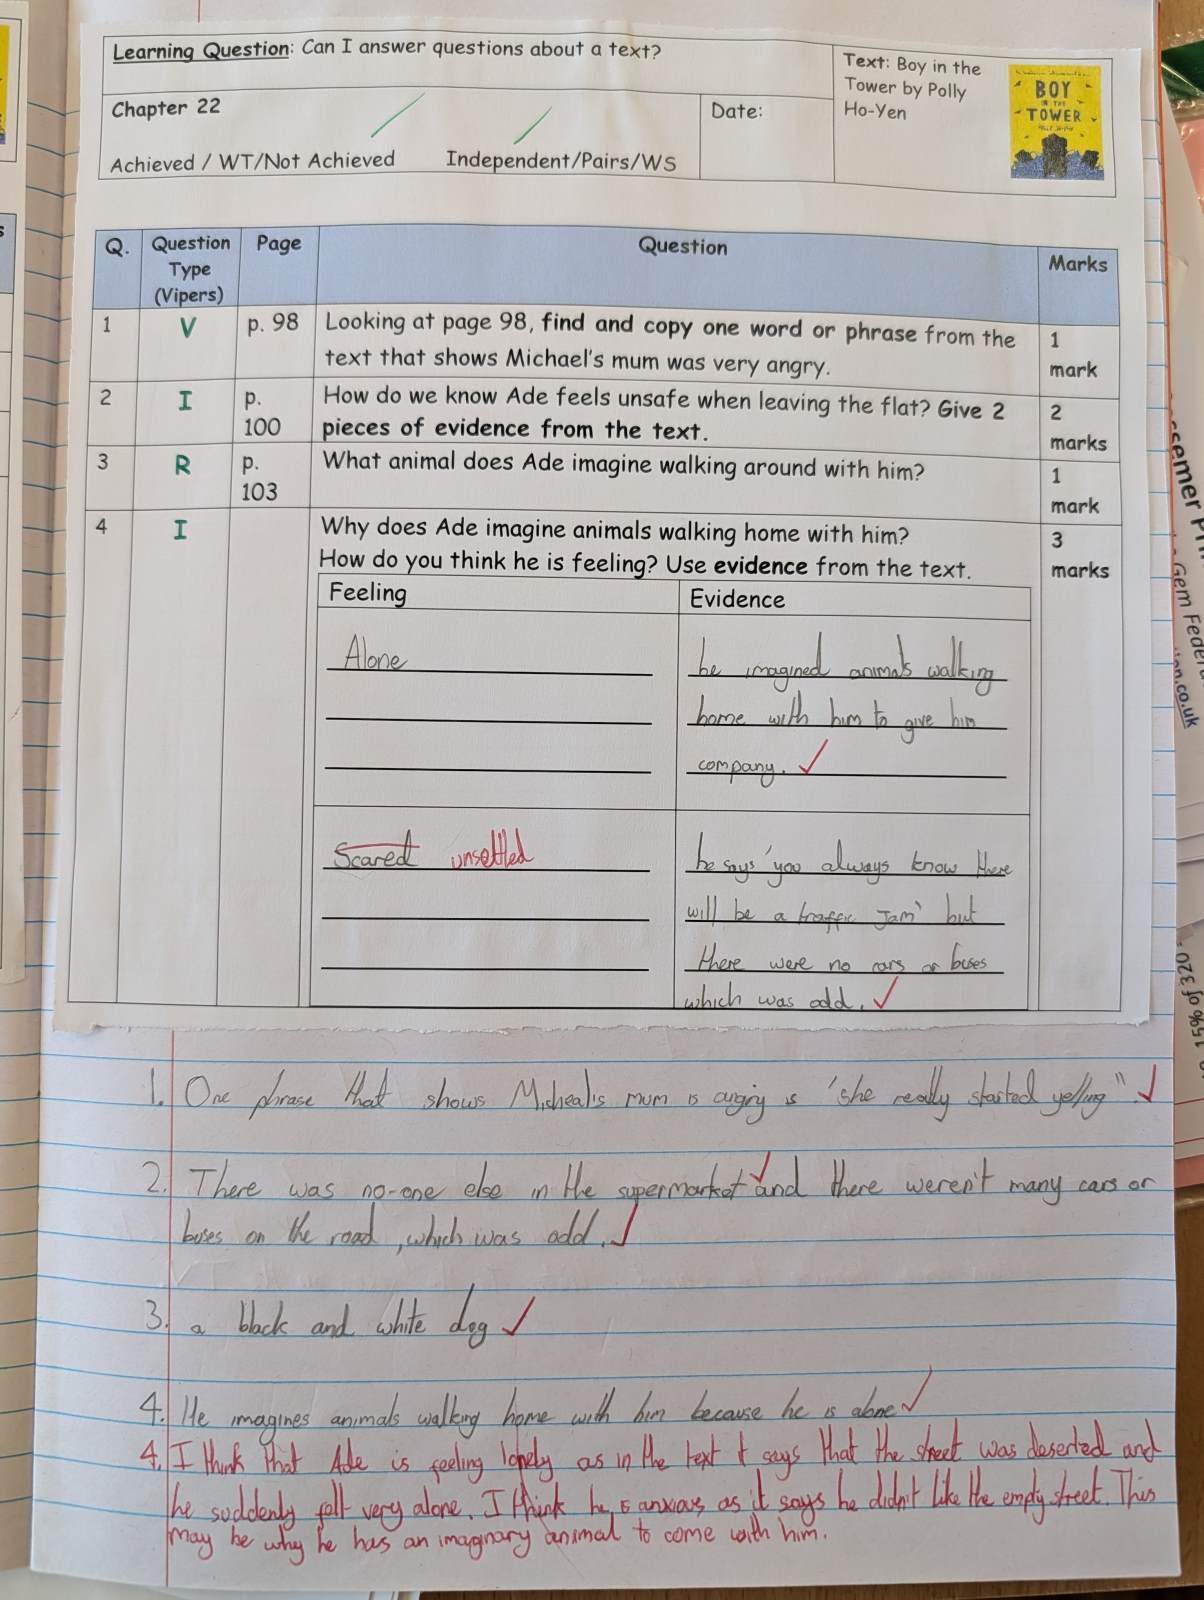 Learning Question: Can I answer questions about a text?
Text: Boy in the
Tower by Polly
Ho-Yen
BOY
IN THE
TOWER
Chapter 22
Date:
Achieved / WT/Not Achieved Independent/Pairs/WS
Q. Question Type (Vipers) Page Question Marks
1 V p. 98 Looking at page 98, find and copy one word or phrase from the
text that shows Michael's mum was very angry.
1
mark
2 I p.
100
How do we know Ade feels unsafe when leaving the flat? Give 2
pieces of evidence from the text.
2
marks
3 R p.
103
What animal does Ade imagine walking around with him?
1
mark
4 I Why does Ade imagine animals walking home with him?
How do you think he is feeling? Use evidence from the text.
3
marks
Feeling Evidence
Alone
he imagined animals walking
home with him to give him
company.
Scared unsettled
he says 'you always know there
will be a traffic jam' but
there were no cars or buses
which was odd.
1. One phrase that shows Micheal's mum is angry is 'she really started yelling".
2. There was no-one else in the supermarket and there weren't many cars or
buses on the road, which was odd.
3. a black and white dog
4. He imagines animals walking home with him because he is alone
4. I think that Ade is feeling lonely as in the text it says that the street was deserted and
he suddenly felt very alone. I think he is anxious as it says he didn't like the empty street. This
may be why he has an imaginary animal to come with him.
Gem Feder
on.co.uk
159b of 320